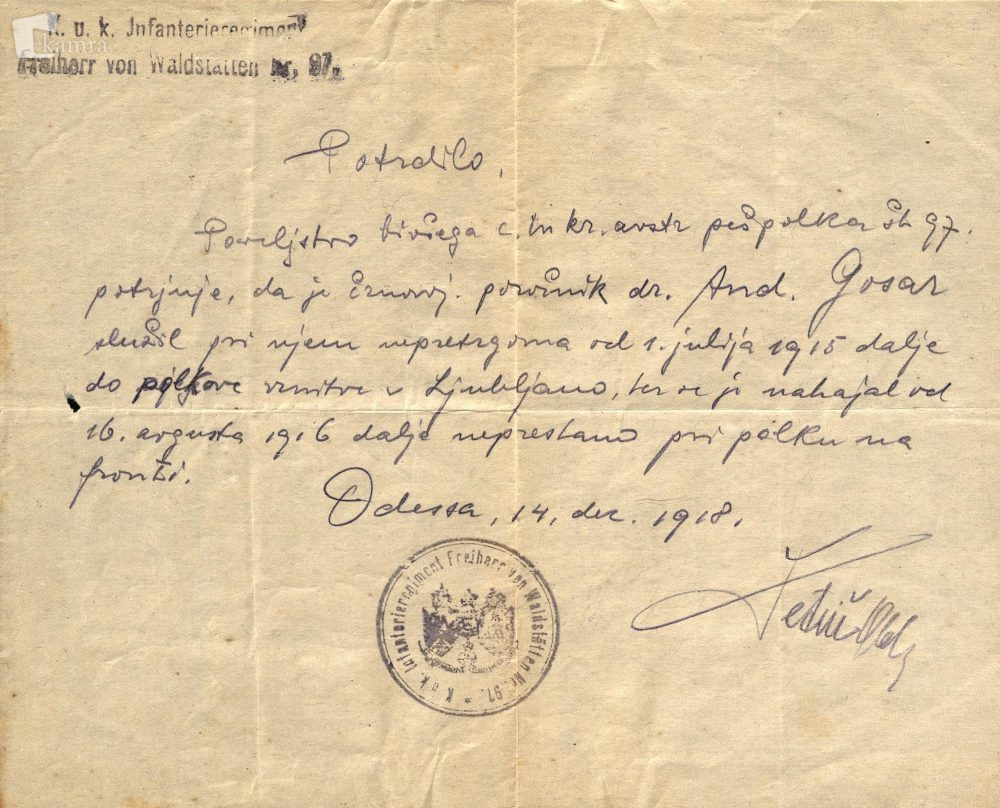 K. u. k. Infanterieregiment
kamra
Freiherr von Waldstätten nr. 97.
Potrdilo,
Poveljstvo bivšega c. in kr. avstr pešpolka št 97.
potrjuje, da je črnovoj. poročnik dr. And. Gosar
služil pri njem nepretrgoma od 1. julija 1915 dalje
do polkove vrnitve v Ljubljano, ter se je nahajal od
16. avgusta 1916 dalje neprestano pri polku na
fronti.
Odessa, 14. dec. 1918.
K. u. k. Infanterieregiment Freiherr von Waldstätten Nr. 97. *